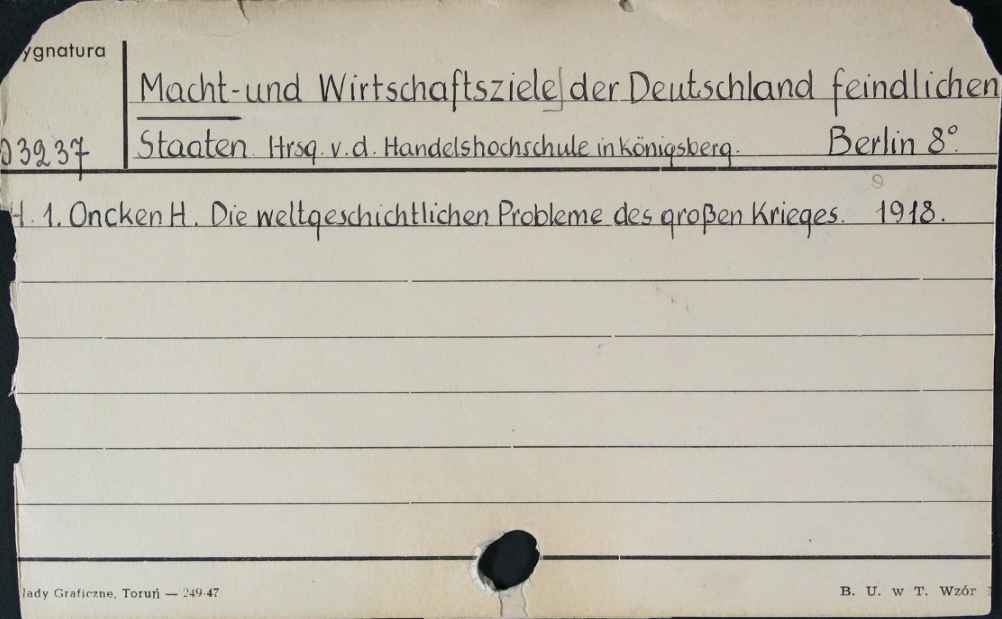 ygnatura
Macht-und Wirtschaftsziele] der Deutschland feindlichen
03237
Staaten. Hrsg. v. d. Handelshochschule in Königsberg. Berlin 8°.
H. 1. Oncken H. Die weltgeschichtlichen Probleme des großen Krieges. 1918.
lady Graficzne, Toruń — 249-47
B. U. w T. Wzór